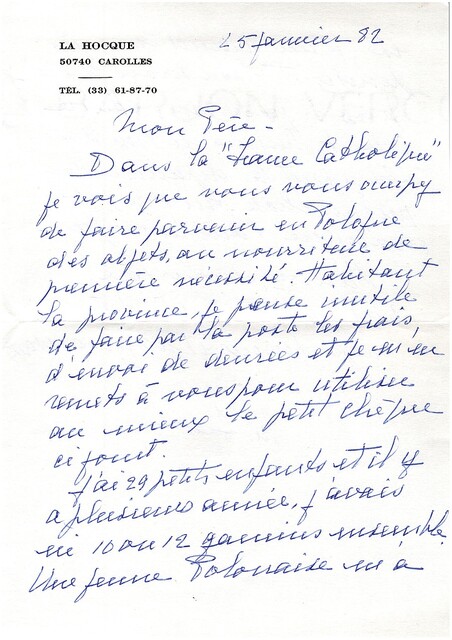 LA HOCQUE
50740 CAROLLES
TÉL. (33) 61-87-70
25 janvier 82
Mon Père -
Dans la "France Catholique"
je vois que vous vous occupez
de faire parvenir en Pologne
des objets, ou nourriture de
première nécessité. Habitant
la province, je pense inutile
de faire par la poste les frais
d'envoi de denrées et je m'en
remets à vous pour utiliser
au mieux le petit chèque
ci joint.
J'ai 29 petits enfants et il y
a plusieurs années, j'avais
ici 10 ou 12 gamins ensemble.
Une jeune Polonaise m'a